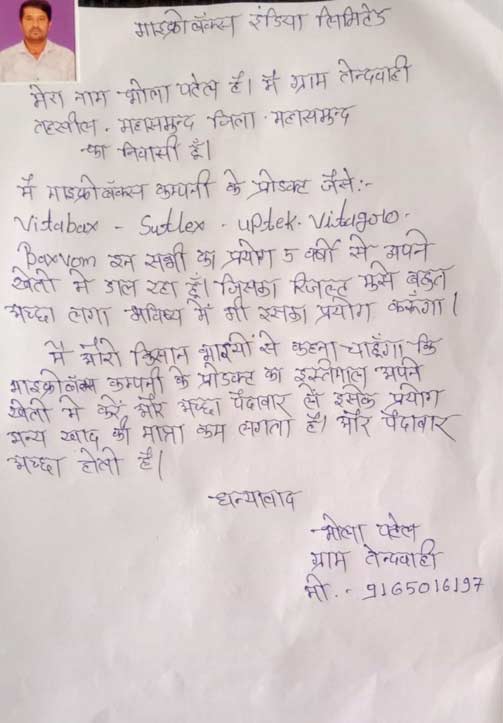 माइक्रोबॅक्स इंडिया लिमिटेड
मेरा नाम भोला पटेल है। मैं ग्राम तेन्दवाही
तहसील. महासमुन्द जिला. महासमुन्द
का निवासी हूँ।
मैं माइक्रोबॅक्स कम्पनी के प्रोडक्ट जैसे:-
Vitabax - Sutlex - uptek. Vitagold.
Baxvam इन सभी का प्रयोग 5 वर्षों से अपने
खेती में डाल रहा हूँ। जिसका रिजल्ट मुझे बहुत
अच्छा लगा भविष्य में भी इसका प्रयोग करूँगा।
मैं औरो किसान भाइयों से कहना चाहूँगा कि
माइक्रोबॅक्स कम्पनी के प्रोडक्ट का इस्तेमाल अपने
खेती में करें और अच्छा पैदावार लें इसके प्रयोग
अन्य खाद की मात्रा कम लगता है। और पैदावार
अच्छा होती है।
धन्यावाद
भोला पटेल
ग्राम तेन्दवाही
मो. - 9165016197